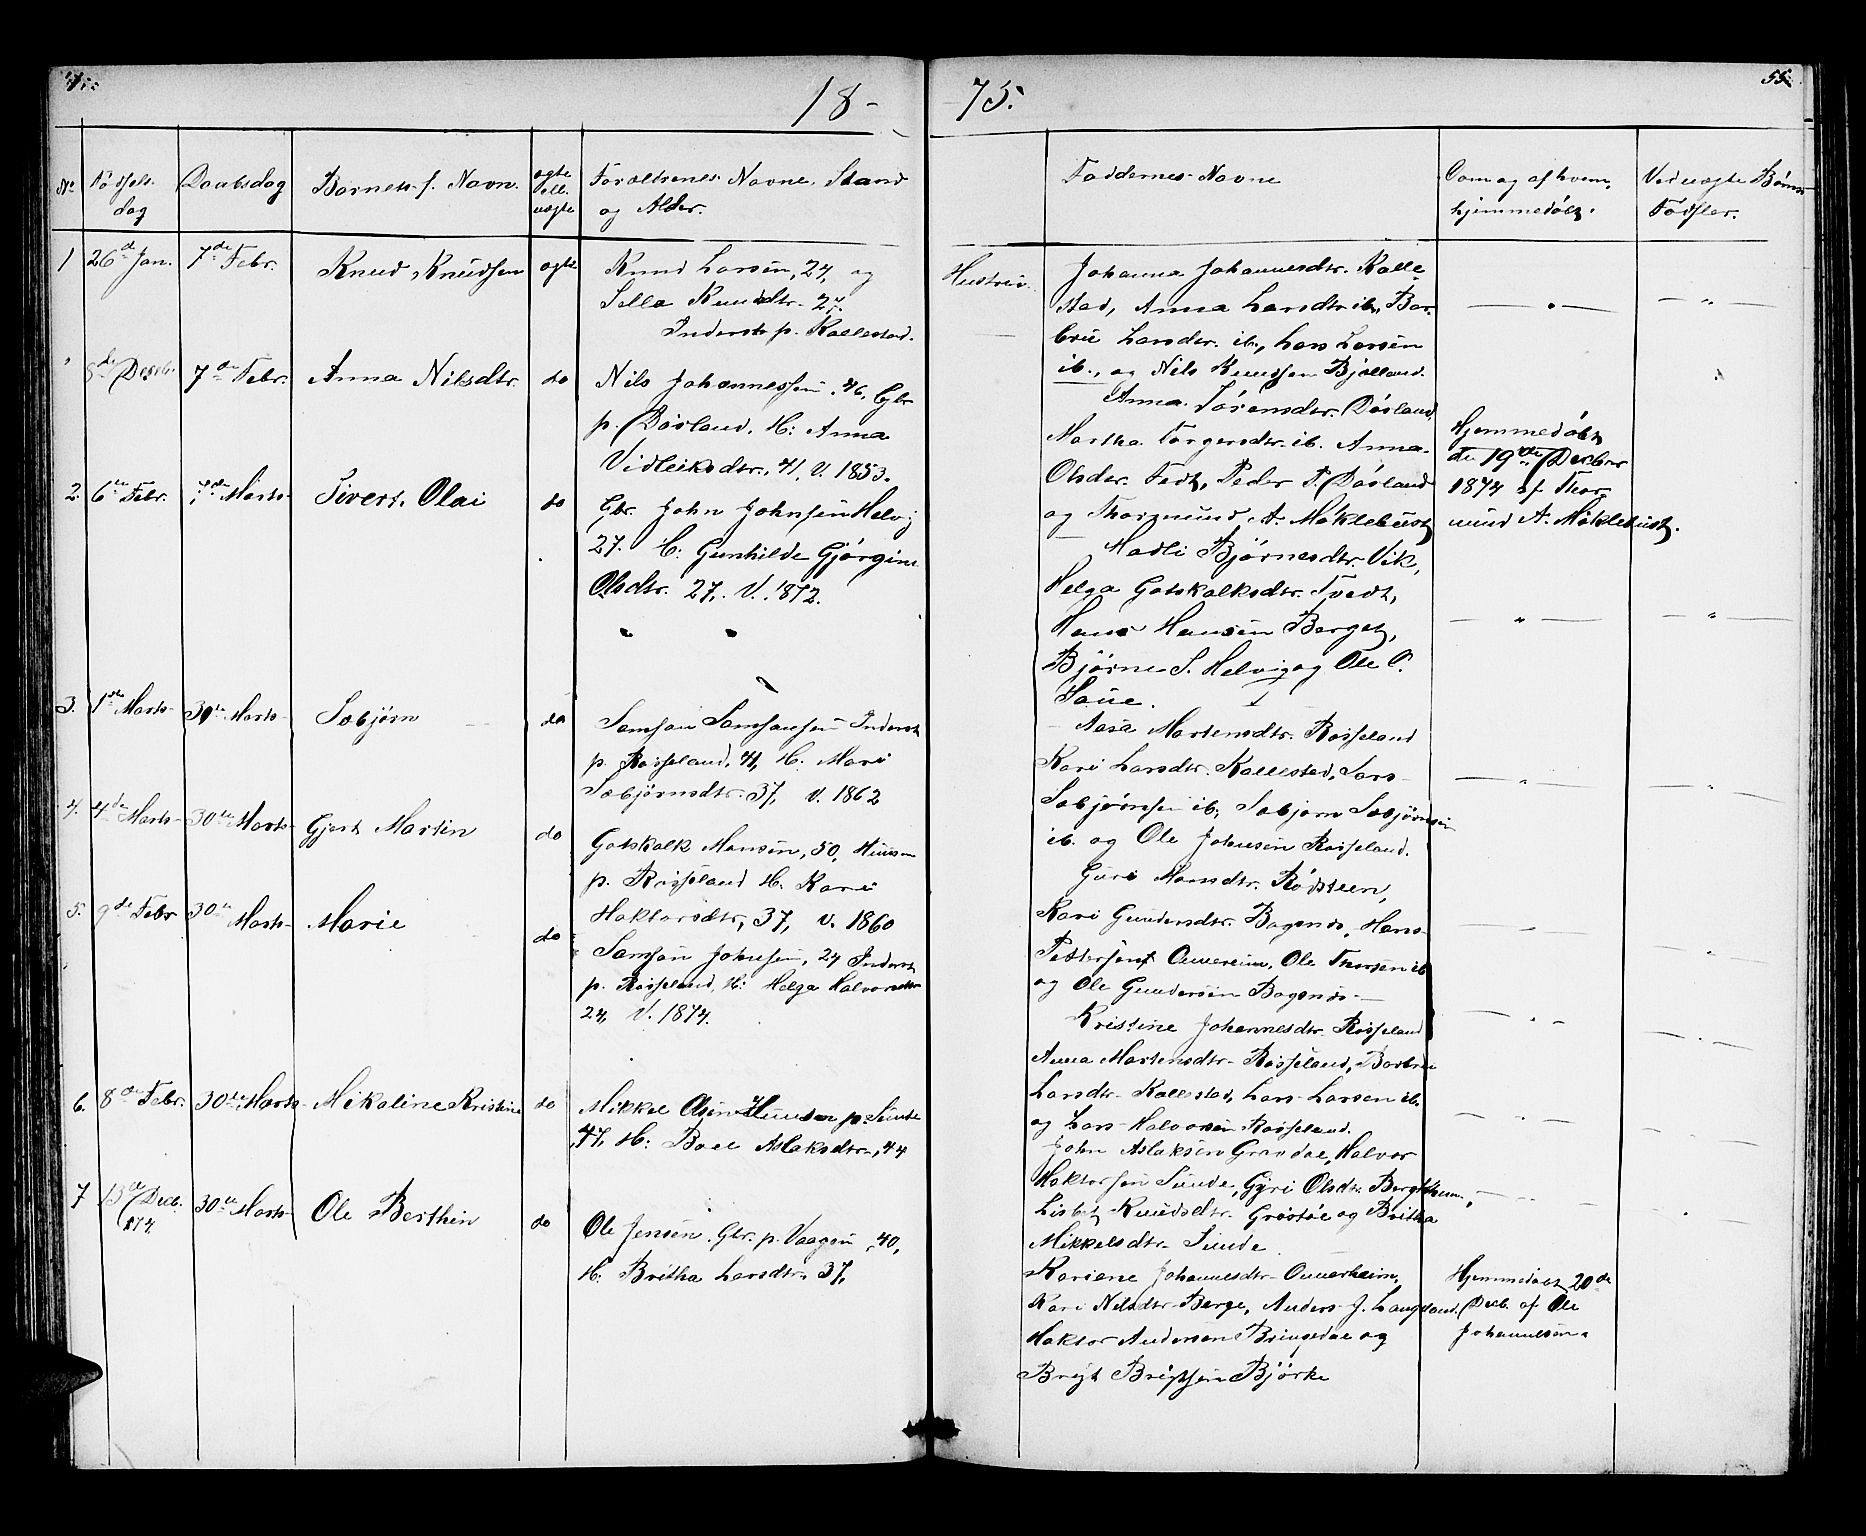 18-
75.
55.
No
Fødsels-
dag
Daabsdag
Barnets f. Navn.
ægte
ell.
uægte
Forældrenes Navne, Stand
og Alder.
Faddernes Navne
Om og af hvem
hjemmedøbt.
Ved uægte Børns
Fødsler.
1
26de Jan.
7de Febr.
Knud Knudsen
ægte
Knud Larsen, 24, og
Hustru
Sella Knudsdtr. 24.
Inderst p. Kallestad.
Johanna Johannesdtr. Kalle-
stad, Anna Larsdtr. ib., Bar-
bru Larsdtr. ib., Lars Larsen
ib., og Nils Knudsen Bjølland.
8de Decb.
7de Febr.
Anna Nilsdtr.
do
Nils Johannessen, 46, Gbr
p. Døsland. H: Anna
Vidleiksdtr., 41, V. 1853.
Anna Sørensdtr. Døsland,
Martha Torgersdtr. ib. Anna
Olsdtr. Tedt, Peder P. Døsland
og Thormund A. Møklebust
Hjemmedøbt
den 19de Decbr
1874 af Thor-
mund A. Møklebust.
2.
6te Febr.
7de Marts
Sivert Olai
do
Gbr. John Johnsen Helvig
27. H: Gunhilde Gjørgine
Olsdtr. 27, V. 1872.
Madli Bjørnesdtr. Vik,
Helga Gotskalksdtr. Tvedt,
Hans Hansen Berget,
Bjørne S. Helvig og Ole O.
Saue.
3.
1ste Marts
30te Marts
Sæbjørn
do
Samson Samsonsen Inderst
p. Røsseland, 41, H. Mari
Sæbjørnsdtr. 37, V. 1862
Aasa Martensdtr. Røsseland
Kari Larsdtr. Kallestad, Lars
Sæbjørnsen ib., Sæbjørn Sæbjørnsen
ib. og Ole Johnsen Røsseland.
4.
4de Marts
30te Marts
Gjert Martin
do
Gotskalk Monsen, 50, Huusm
p. Røsseland H. Kari
Haktorsdtr., 37, V. 1860
Guri Monsdtr. Rødsteen,
Kari Gundersdtr. Bogenæs, Hans
Pettersen Omereim, Ole Thorsen ib
og Ole Gundersen Bogenæs
5.
9de Febr
30te Marts
Marie
do
Samson Johnsen, 24 Inderst
p. Røsseland, H: Helga Halvorsdtr
24, V. 1874.
Kristine Johannesdtr. Røsseland
Anna Martensdtr. Røsseland, Barbru
Larsdtr. Kallestad, Lars Larsen ib.
og Lars Halvorsen Røsseland.
6.
8de Febr.
30te Marts
Mikaline Kristine
do
Mikkel Olsen Huusm p. Sunde
47, H: Boel Aslaksdtr., 44
John Aslaksen Gravdal, Halvor
Haktorsen Sunde, Gyri Olsdtr. Bergthun,
Lisbet Knudsdtr. Grøstøl og Britha
Mikkelsdtr. Sunde.
7
13de Decb.
1874
30te Marts
Ole Berthin
do
Ole Jensen. Gbr. p. Vaagen, 40,
H: Britha Larsdtr. 37,
Kariane Johannesdtr. Omerheim,
Kari Nilsdtr. Berge, Anders J. Langeland,
Haktor Andersen Bringedal og
Brigt Brigtsen Bjørke
Hjemmedøbt 20de
Decb. af Ole
Johannesen.